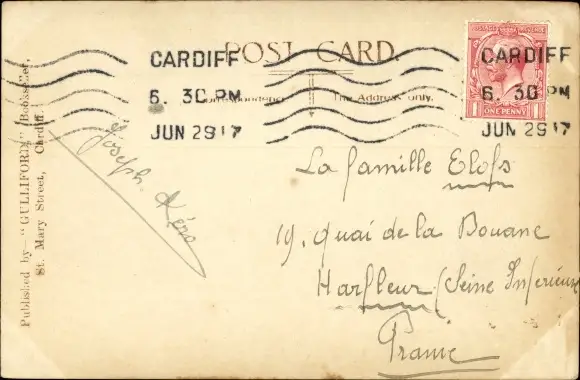 POST CARD.
The Address only.
CARDIFF
6. 30 PM
JUN 29 17
CARDIFF
6. 30 PM
JUN 29 17
POSTAGE REVENUE
1 ONE PENNY 1
Published by "GULLIFORD" Bookseller,
St. Mary Street, Cardiff.
Joseph.
La famille Elofs
19. Quai de la Douane
Harfleur (Seine Inferieure
France